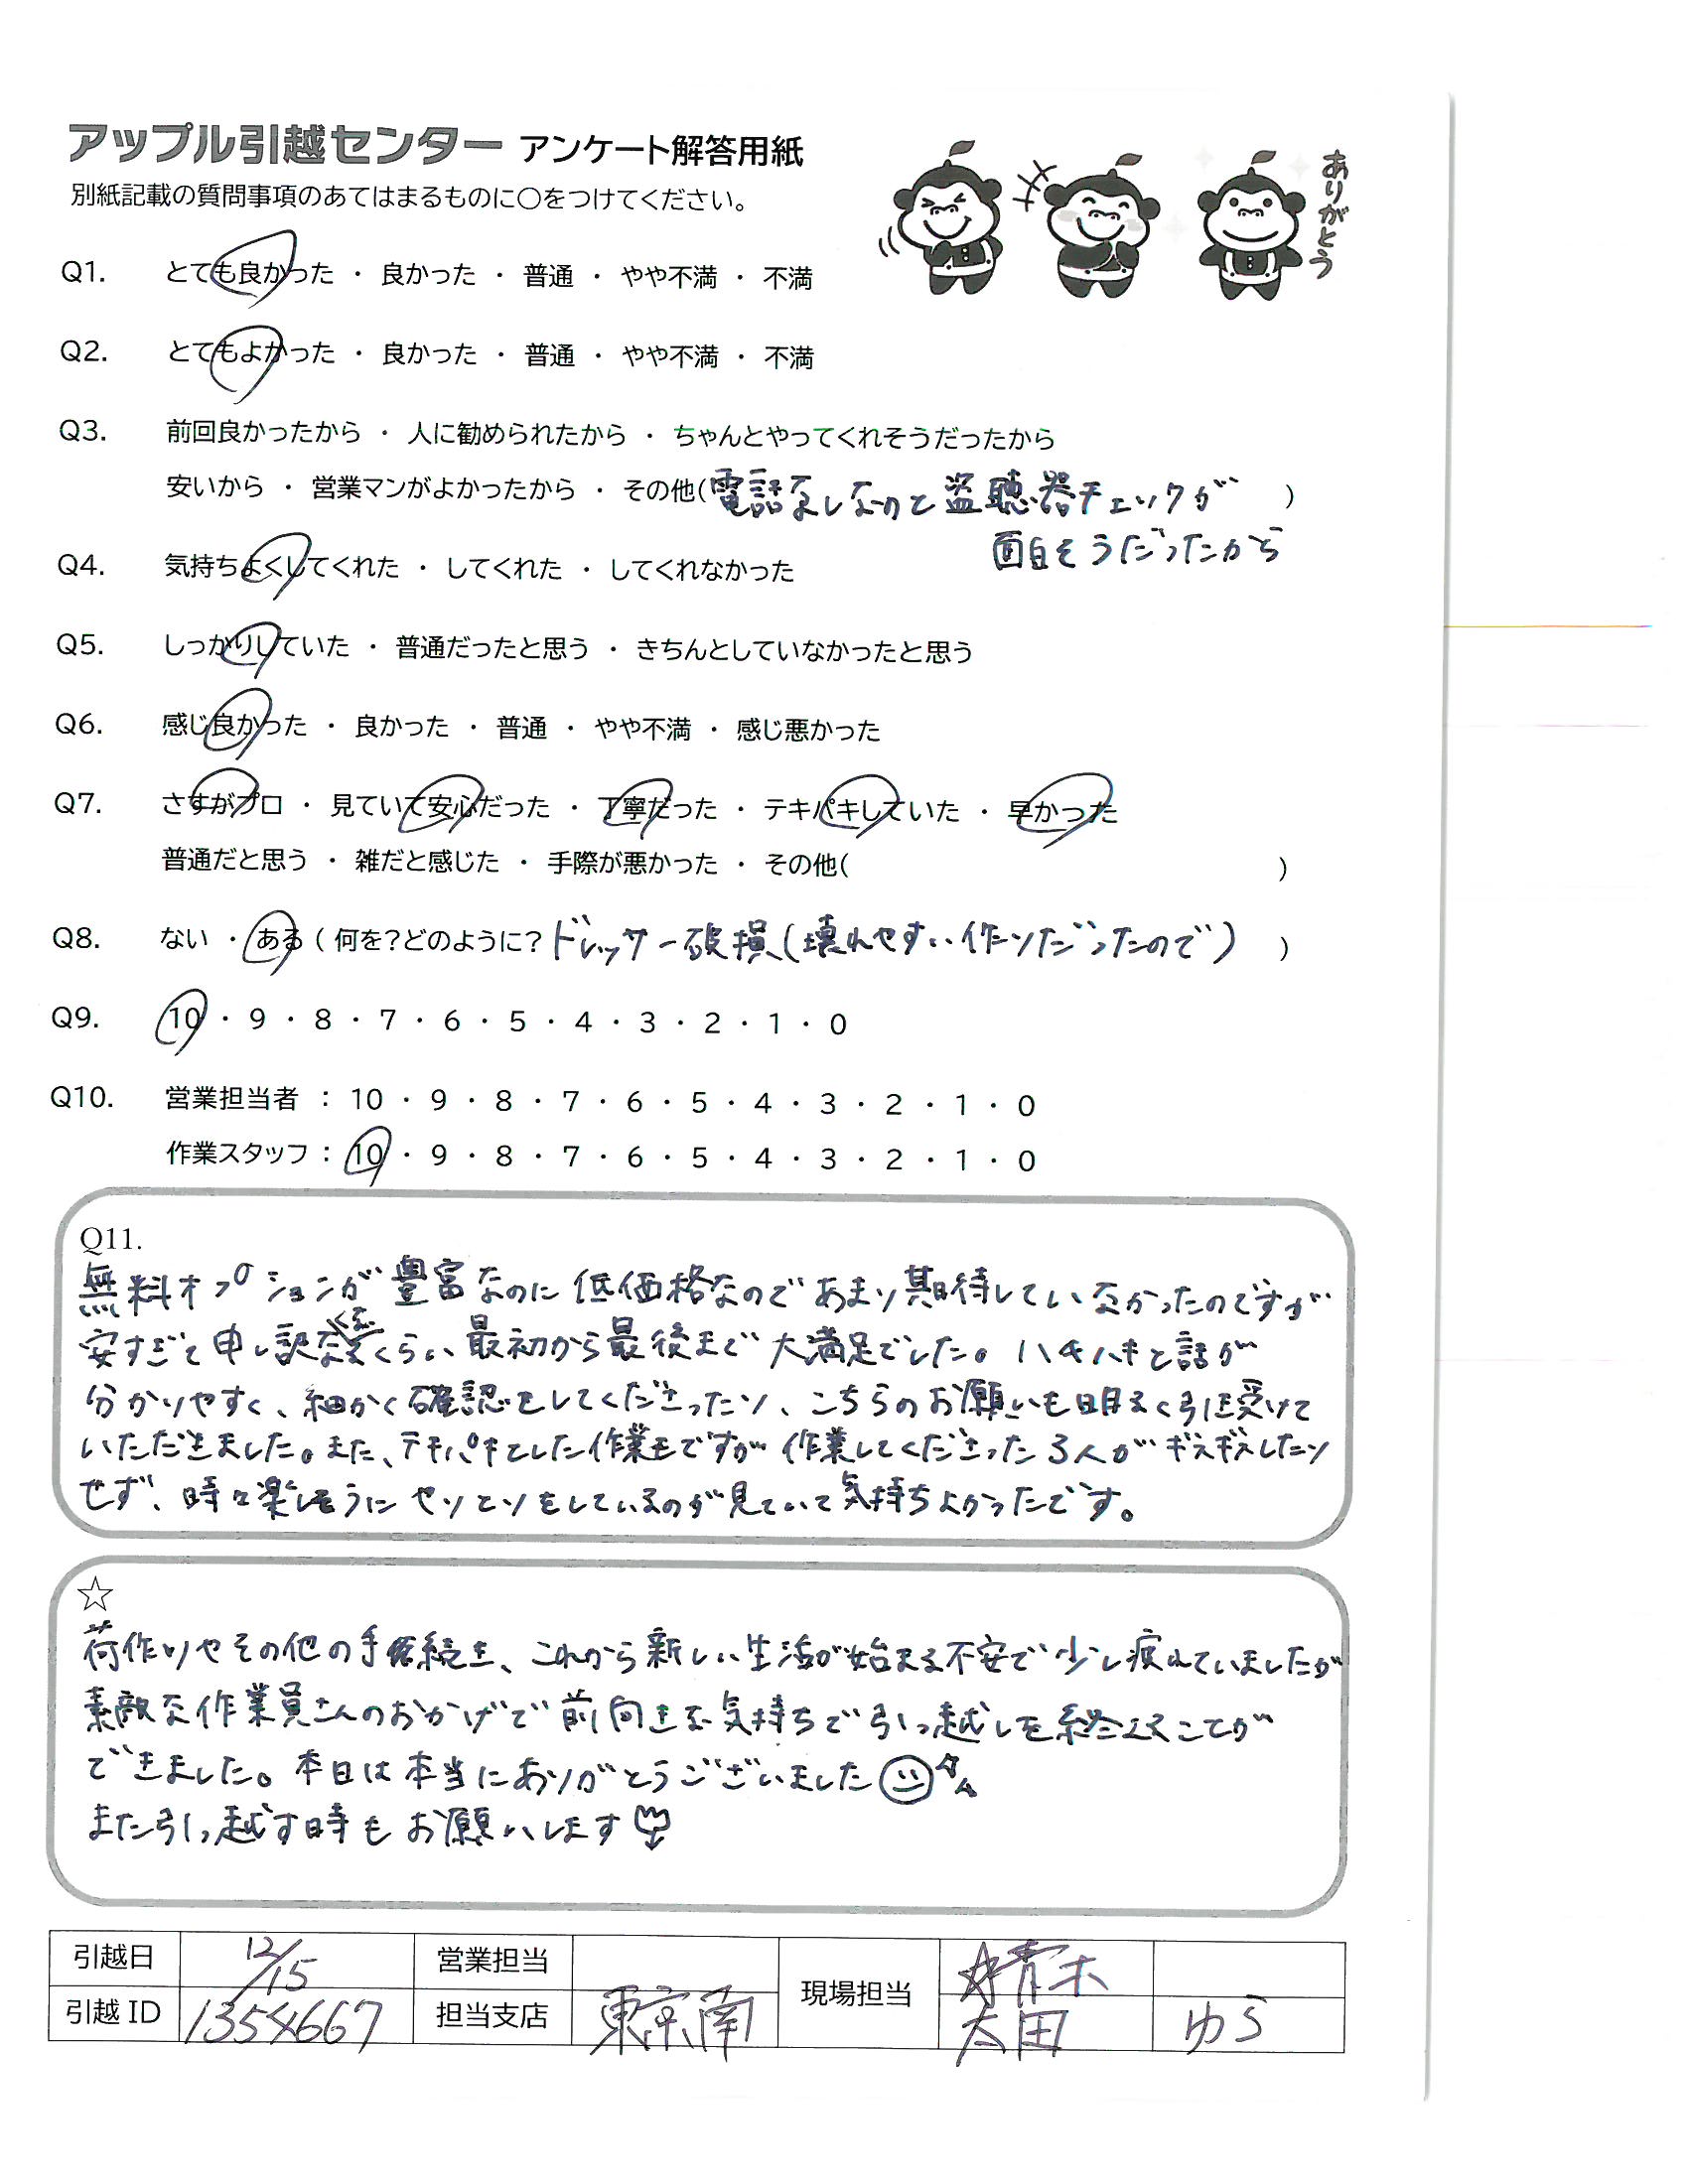 アップル引越センター アンケート解答用紙
別紙記載の質問事項のあてはまるものに○をつけてください。
ありがとう
Q1. とても良かった ・ 良かった ・ 普通 ・ やや不満 ・ 不満
Q2. とてもよかった ・ 良かった ・ 普通 ・ やや不満 ・ 不満
Q3. 前回良かったから ・ 人に勧められたから ・ ちゃんとやってくれそうだったから
安いから ・ 営業マンがよかったから ・ その他(電話なしなのと盗聴器チェックが )
面白そうだったから
Q4. 気持ちよくしてくれた ・ してくれた ・ してくれなかった
Q5. しっかりしていた ・ 普通だったと思う ・ きちんとしていなかったと思う
Q6. 感じ良かった ・ 良かった ・ 普通 ・ やや不満 ・ 感じ悪かった
Q7. さすがプロ ・ 見ていて安心だった ・ 丁寧だった ・ テキパキしていた ・ 早かった
普通だと思う ・ 雑だと感じた ・ 手際が悪かった ・ その他( )
Q8. ない ・ ある ( 何を?どのように? ドレッサー破損(壊れやすい作りだったので) )
Q9. 10 ・ 9 ・ 8 ・ 7 ・ 6 ・ 5 ・ 4 ・ 3 ・ 2 ・ 1 ・ 0
Q10. 営業担当者 : 10 ・ 9 ・ 8 ・ 7 ・ 6 ・ 5 ・ 4 ・ 3 ・ 2 ・ 1 ・ 0
作業スタッフ : 10 ・ 9 ・ 8 ・ 7 ・ 6 ・ 5 ・ 4 ・ 3 ・ 2 ・ 1 ・ 0
Q11.
無料オプションが豊富なのに低価格なのであまり期待していなかったのですが
安すぎて申し訳なくなるくらい最初から最後まで大満足でした。ハキハキと話が
分かりやすく、細かく確認をしてくださったり、こちらのお願いも明るく引き受けて
いただきました。また、テキパキとした作業もですが作業してくださった3人がギスギスしたり
せず、時々楽しそうにやりとりをしているのが見ていて気持ちよかったです。
☆
荷作りやその他の手続き、これから新しい生活が始まる不安で少し疲れていましたが
素敵な作業員さんのおかげで前向きな気持ちで引っ越しを終えることが
できました。本日は本当にありがとうございました
また引っ越す時もお願いします
引越日 12/15 営業担当 現場担当 ☆青木
引越ID 1354667 担当支店 東京南 太田 ゆう